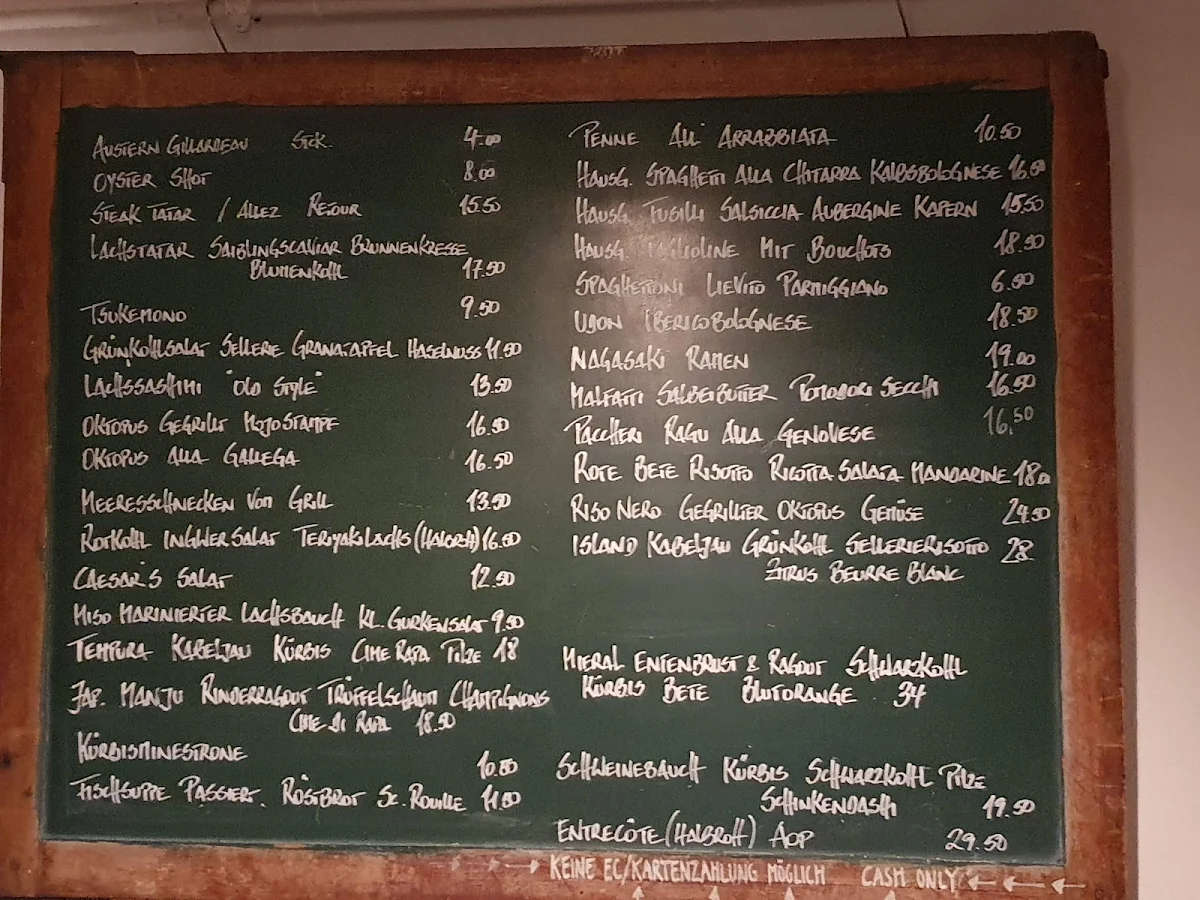 AUSTERN GILLARDEAU STCK. 4.00
OYSTER SHOT 8.00
STEAK TATAR / ALLEZ RETOUR 15.50
LACHSTATAR SAIBLINGSCAVIAR BRUNNENKRESSE
BLUMENKOHL 17.50
TSUKEMONO 9.50
GRÜNKOHLSALAT SELLERIE GRANATAPFEL HASELNUSS 11.50
LACHSSASHIMI "OLD STYLE" 13.50
OKTOPUS GEGRILLT MOJO STAMPF 16.50
OKTOPUS ALLA GALLEGA 16.50
MEERESSCHNECKEN VOM GRILL 13.50
ROTKOHL INGWER SALAT TERIYAKI LACHS (HALBROH) 16.50
CAESAR'S SALAT 12.50
MISO MARINIERTER LACHSBAUCH KL. GURKENSALAT 9.50
TEMPURA KABELJAU KÜRBIS CIME RAPA PILZE 18
JAP. MANJU RINDERRAGOUT TRÜFFELSCHAUM CHAMPIGNONS
CIME DI RAPA 18.50
KÜRBISMINESTRONE 10.80
FISCHSUPPE PASSIERT. RÖSTBROT SC. ROUILLE 11.80
PENNE ALL' ARRABBIATA 10.50
HAUSG. SPAGHETTI ALLA CHITARRA KALBSBOLOGNESE 16.50
HAUSG. FUSILLI SALSICCIA AUBERGINE KAPERN 15.50
HAUSG. TAGLIOLINE MIT BOUCHOTS 18.50
SPAGHETTONI LIEVITO PARMIGGIANO 6.90
UDON IBERICOBOLOGNESE 18.50
NAGASAKI RAMEN 19.00
MALFATTI SALBEIBUTTER POMODORI SECCHI 16.50
PACCHERI RAGU ALLA GENOVESE 16,50
ROTE BETE RISOTTO RICOTTA SALATA MANDARINE 18.0
RISO NERO GEGRILLTER OKTOPUS GEMÜSE 24.50
ISLAND KABELJAU GRÜNKOHL SELLERIERISOTTO 28
ZITRUS BEURRE BLANC
MIERAL ENTENBRUST & RAGOUT SCHWARZKOHL
KÜRBIS BETE BLUTORANGE 34
SCHWEINEBAUCH KÜRBIS SCHWARZKOHL PILZE
SCHINKENDASHI 19.50
ENTRECÔTE (HALBROH) AOP 29.50
→ KEINE EC/KARTENZAHLUNG MÖGLICH CASH ONLY ← ← ←